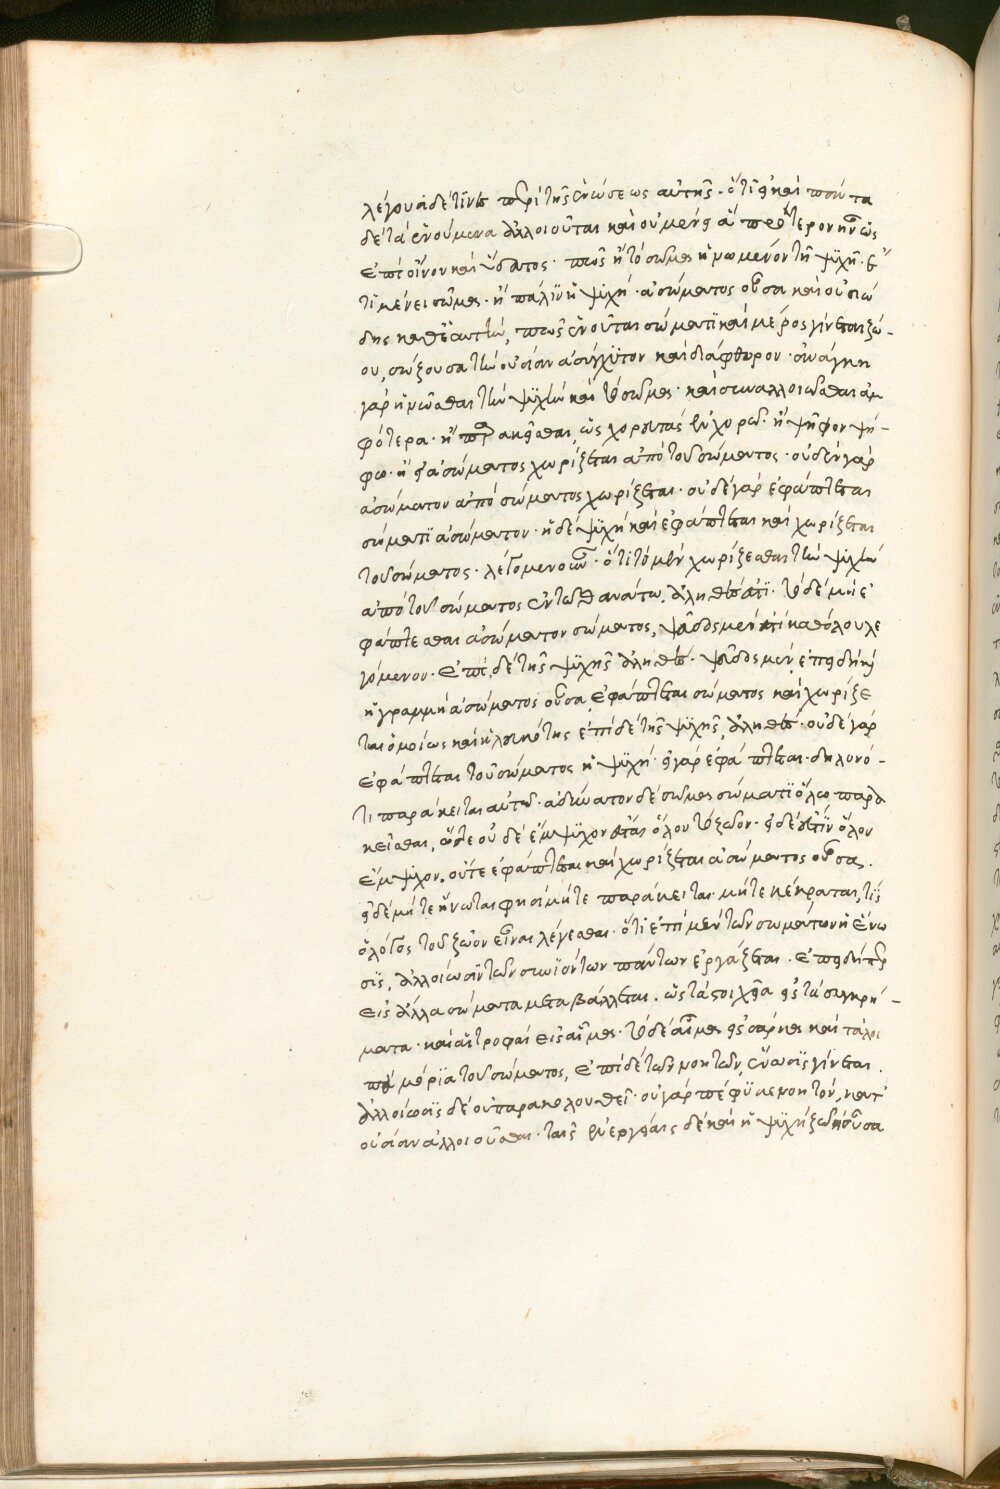 λέγουσι δέ τινες περὶ τῆς ἑνώσεως αὐτῆς· ὅτι εἰ καὶ πάντα
δὲ τὰ ἑνούμενα ἀλλοιοῦται καὶ οὐ μένει ἃ πρότερον ἦν ὡς
ἐπὶ οἴνου καὶ ὕδατος· πῶς ἢ τὸ σῶμα ἡνωμένον τῇ ψυχῇ ἔ
τι μένει σῶμα· ἢ πάλιν ἡ ψυχὴ ἀσώματος οὖσα καὶ οὐσιώ
δης καθ' ἑαυτὴν, πῶς ἑνοῦται σώματι καὶ μέρος γίνεται ζώ-
ου, σώζουσα τὴν οὐσίαν ἀσύγχυτον καὶ διάφθορον· ἀνάγκη
γὰρ ἡνῶσθαι τὴν ψυχὴν καὶ τὸ σῶμα· καὶ συναλλοιοῦσθαι ἀμ
φότερα· ἢ παρακεῖσθαι, ὡς χορευτὰς ἐν χορῷ· ἢ ψῆφον ψή-
φω· ἢ εἰ ἀσώματος χωρίζεται ἀπὸ τοῦ σώματος· οὐδὲν γὰρ
ἀσώματον ἀπὸ σώματος χωρίζεται· οὐδὲ γὰρ ἐφάπτεται
σώματι ἀσώματον· ἡ δὲ ψυχὴ καὶ ἐφάπτεται καὶ χωρίζεται
τοῦ σώματος· λέγομεν οὖν· ὅτι τὸ μὲν χωρίζεσθαι τὴν ψυχὴν
ἀπὸ τοῦ σώματος ἐν τῷ θανάτω, ἀληθές ἐστι· τὸ δὲ μὴ ἐ
φάπτεσθαι ἀσώματον σώματος, ψεῦδος μέν ἐστι καθόλου λε
γόμενον· ἐπὶ δὲ τῆς ψυχῆς ἀληθές· ψεῦδος μὲν, ἐπειδὴ καὶ
ἡ γραμμὴ ἀσώματος οὖσα, ἐφάπτεται σώματος καὶ χωρίζε
ται ὁμοίως καὶ ἡ λευκότης ἐπὶ δὲ τῆς ψυχῆς, ἀληθές· οὐδὲ γὰρ
ἐφάπτεται τοῦ σώματος ἡ ψυχή· εἰ γὰρ ἐφάπτεται· δηλονό-
τι παράκειται αὐτῷ· ἀδύνατον δὲ σῶμα σώματι ὅλω παρα
κεῖσθαι, ὥστε οὐδὲ ἔμψυχον ἔσται ὅλον τὸ ζῶον· εἰ δέ ἐστιν ὅλον
ἔμψυχον, οὔτε ἐφάπτεται καὶ χωρίζεται ἀσώματος οὖσα.
εἰ δὲ μήτε ἥνωται φησὶ μήτε παράκειται· μήτε κέκραται, τίς
ὁ λόγος τοῦ ζῶον εἶναι λέγεσθαι· ὅτι ἐπὶ μὲν τῶν σωμάτων ἡ ἕνω
σις, ἀλλοίωσιν τῶν συνιόντων πάντων ἐργάζεται· ἐπειδήπερ
εἰς ἄλλα σώματα μεταβάλλεται· ὡς τὰ στοιχεῖα εἰς τὰ συγκρί-
ματα· καὶ αἱ τροφαὶ εἰς αἷμα· τὸ δὲ αἷμα εἰς σάρκα καὶ τὰ λοι
πὰ μόρια τοῦ σώματος, ἐπὶ δὲ τῶν νοητῶν, ἕνωσις γίνεται.
ἀλλοίωσις δὲ οὐ παρακολουθεῖ· οὐ γὰρ πέφυκε νοητὸν, κατ'
οὐσίαν ἀλλοιοῦσθαι· ταῖς ἐνεργείαις δὲ καὶ ἡ ψυχὴ ζωὴ οὖσα